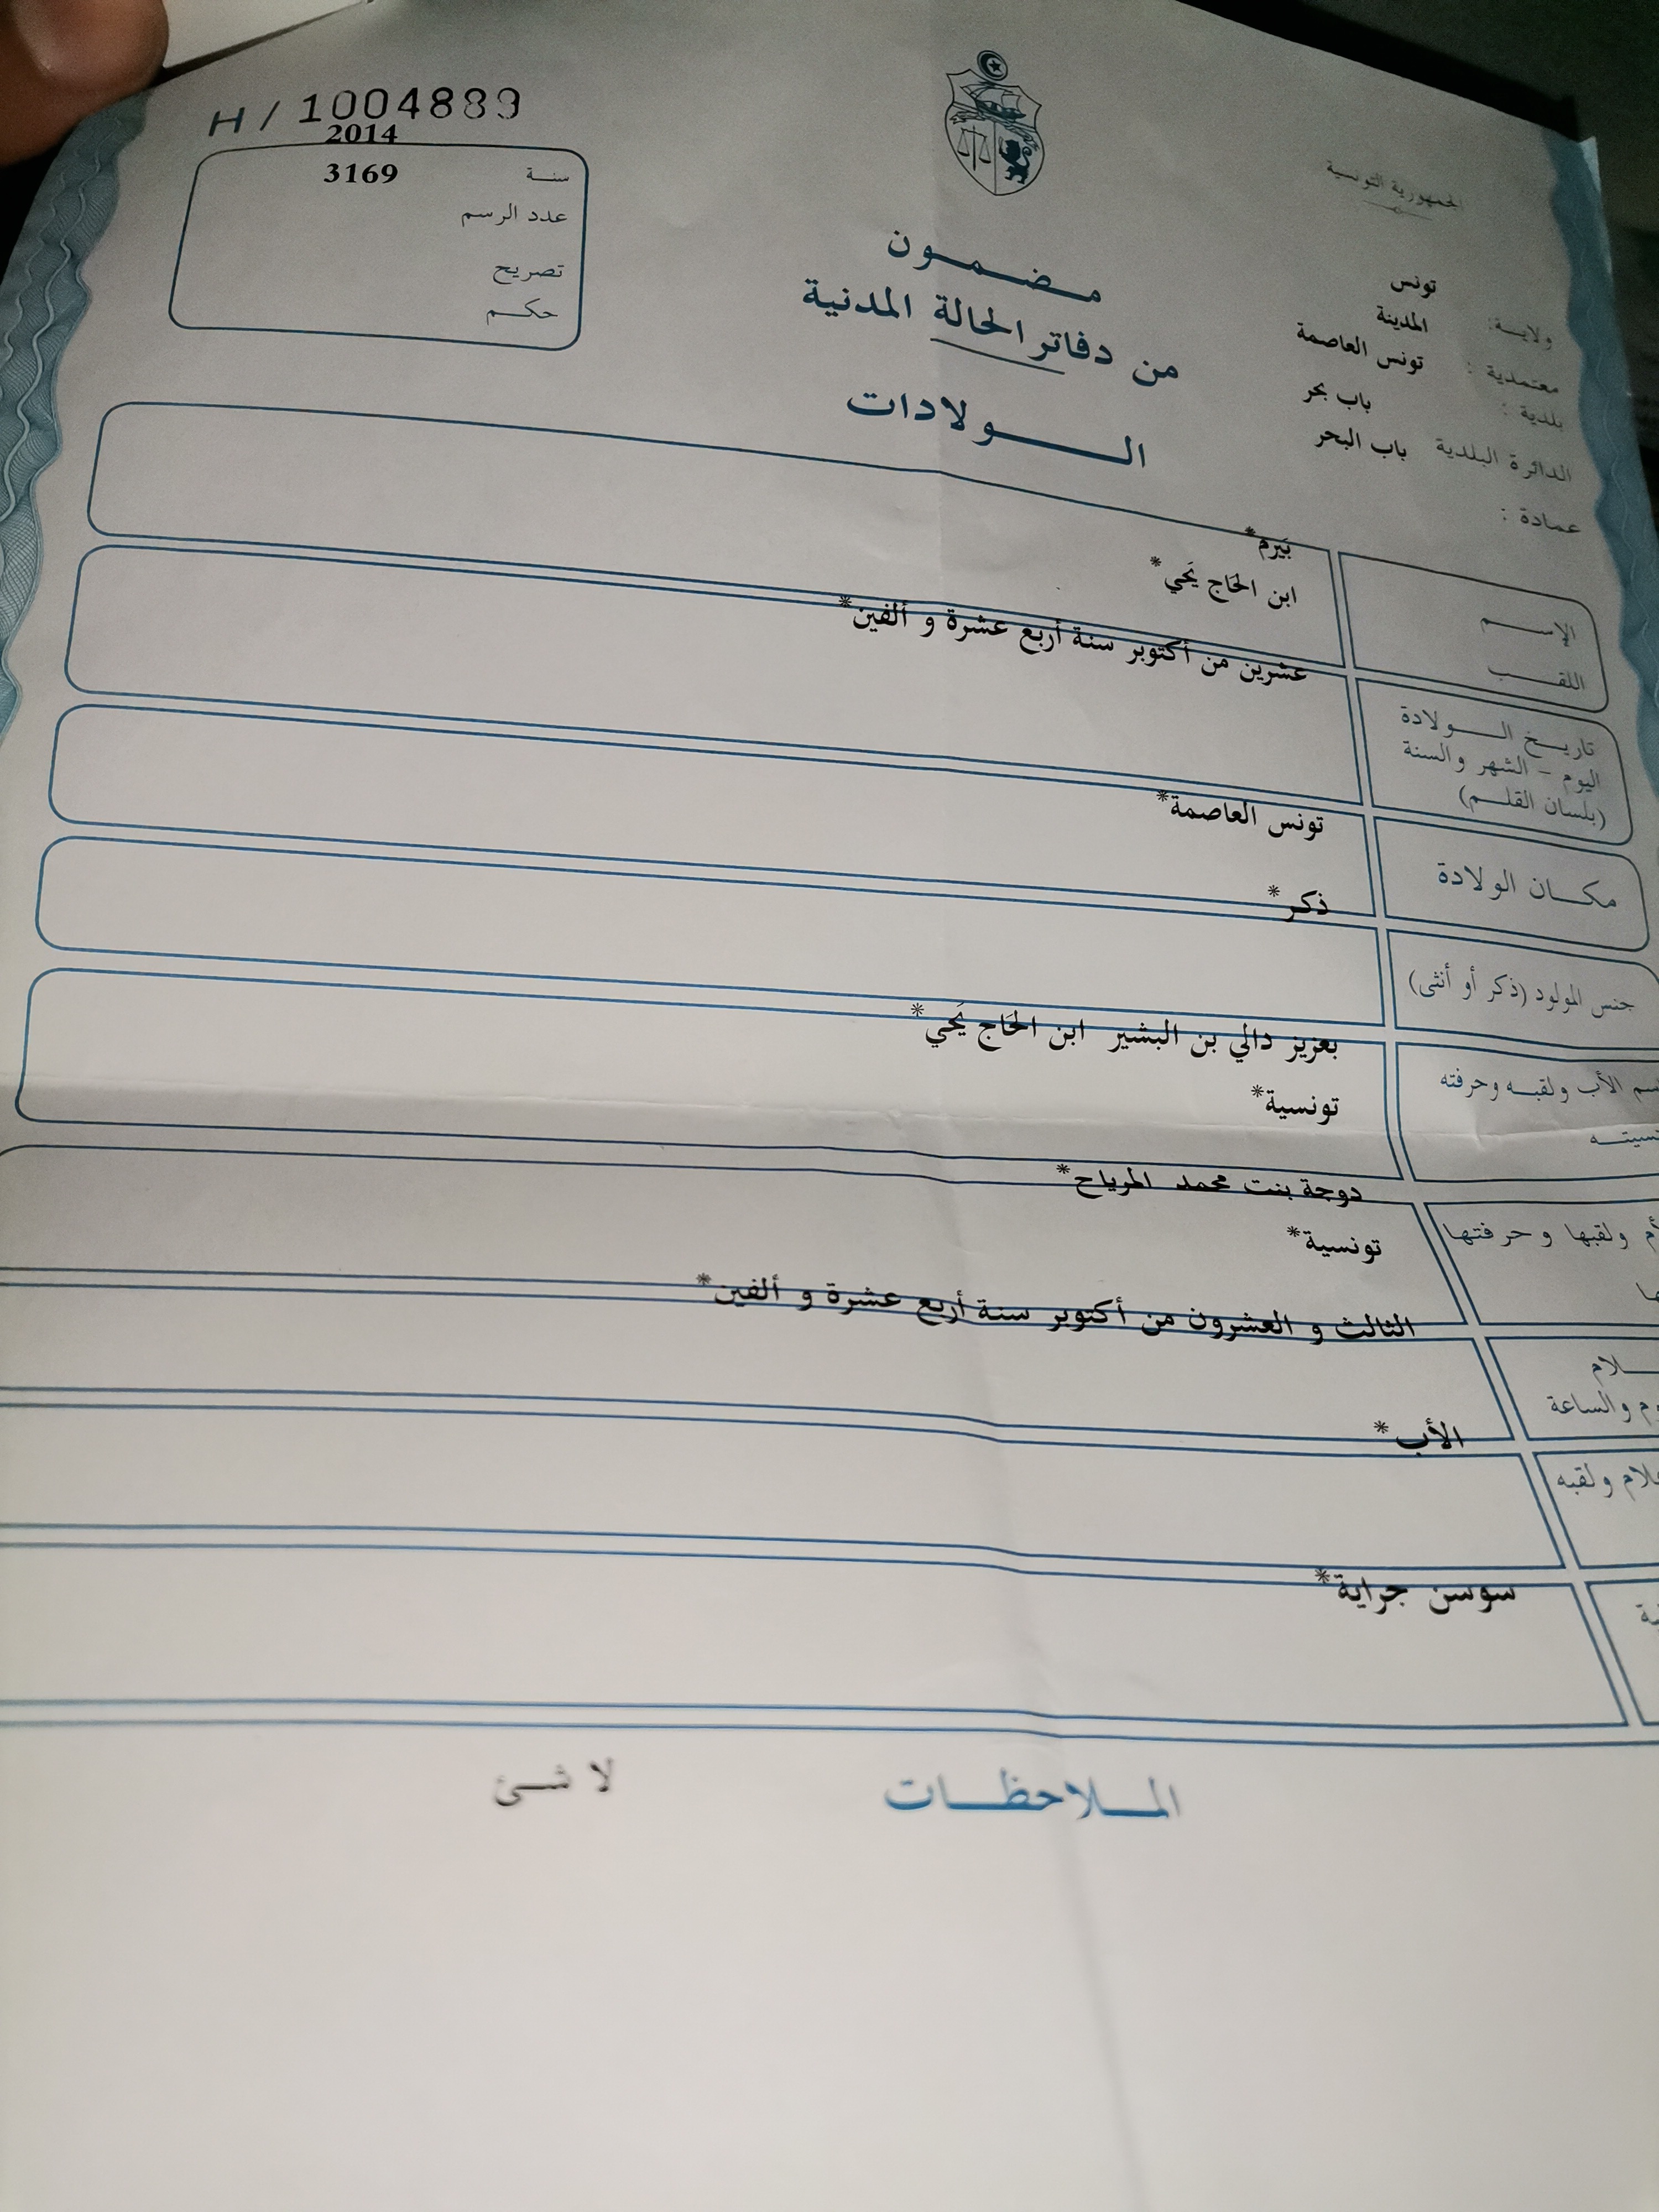 H / 1004889
2014
سنة 3169
عدد الرسم
تصريح
حكم
الجمهورية التونسية
ولاية: تونس
معتمدية: المدينة
بلدية: تونس العاصمة
الدائرة البلدية باب بحر
عمادة: باب البحر
مضمون
من دفاتر الحالة المدنية
الولادات
الإسم بَيرم*
اللقب ابن الحَاج يَحي*
تاريخ الولادة عشرين من أكتوبر سنة أربع عشرة و ألفين*
اليوم - الشهر والسنة
(بلسان القلم)
مكان الولادة تونس العاصمة*
جنس المولود (ذكر أو أنثى) ذكر*
سم الأب ولقبه وحرفته بعزيز دالي بن البشير ابن الحَاج يَحي*
سيته تونسية*
أم ولقبها و حرفتها دوجة بنت محمد المرياح*
ها تونسية*
لام الثالث و العشرون من أكتوبر سنة أربع عشرة و ألفين*
وم والساعة
علام ولقبه الأب*
ية سوسن جراية*
الملاحظات لا شئ